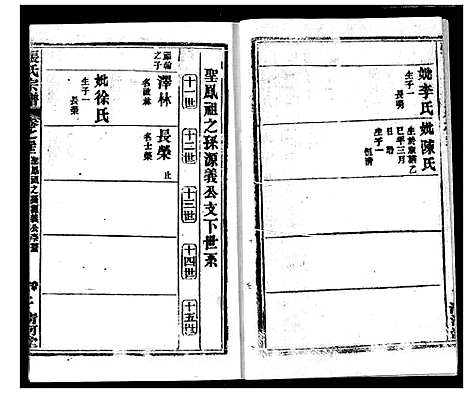 妣李氏
生子一
長明
妣陳氏
生於康熙乙
巳年三月
日時
聖鳳祖之孫源義公支下世系
十一世
十二世
十三世
十四世
十五世
之子
澤林
妣徐氏
生子一
長榮
長榮
止
名士榮
張氏宗譜
聖鳳祖之孫源義公支下
清河堂